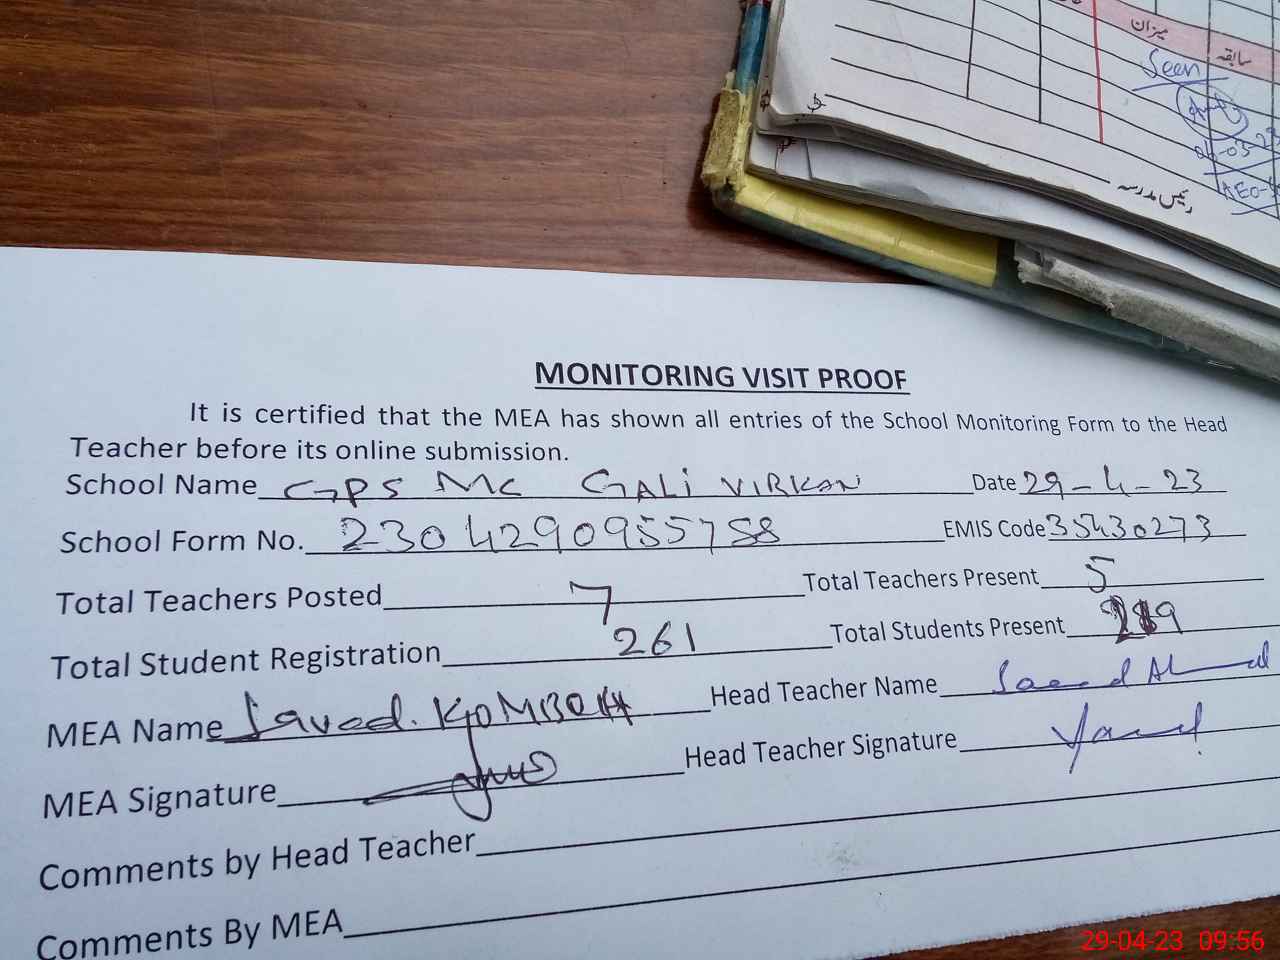 میزان
سابقہ
Seen
رئیس مدرسہ
MONITORING VISIT PROOF
It is certified that the MEA has shown all entries of the School Monitoring Form to the Head
Teacher before its online submission.
School Name GPS MC GALI VIRKAN Date 29-4-23
School Form No. 2304290955758 EMIS Code 35430273
Total Teachers Posted 7 Total Teachers Present 5
Total Student Registration 261 Total Students Present
MEA Name Javed. KOMBOH Head Teacher Name Saeed Ahmed
MEA Signature Head Teacher Signature
Comments by Head Teacher
Comments By MEA
29-04-23 09:56